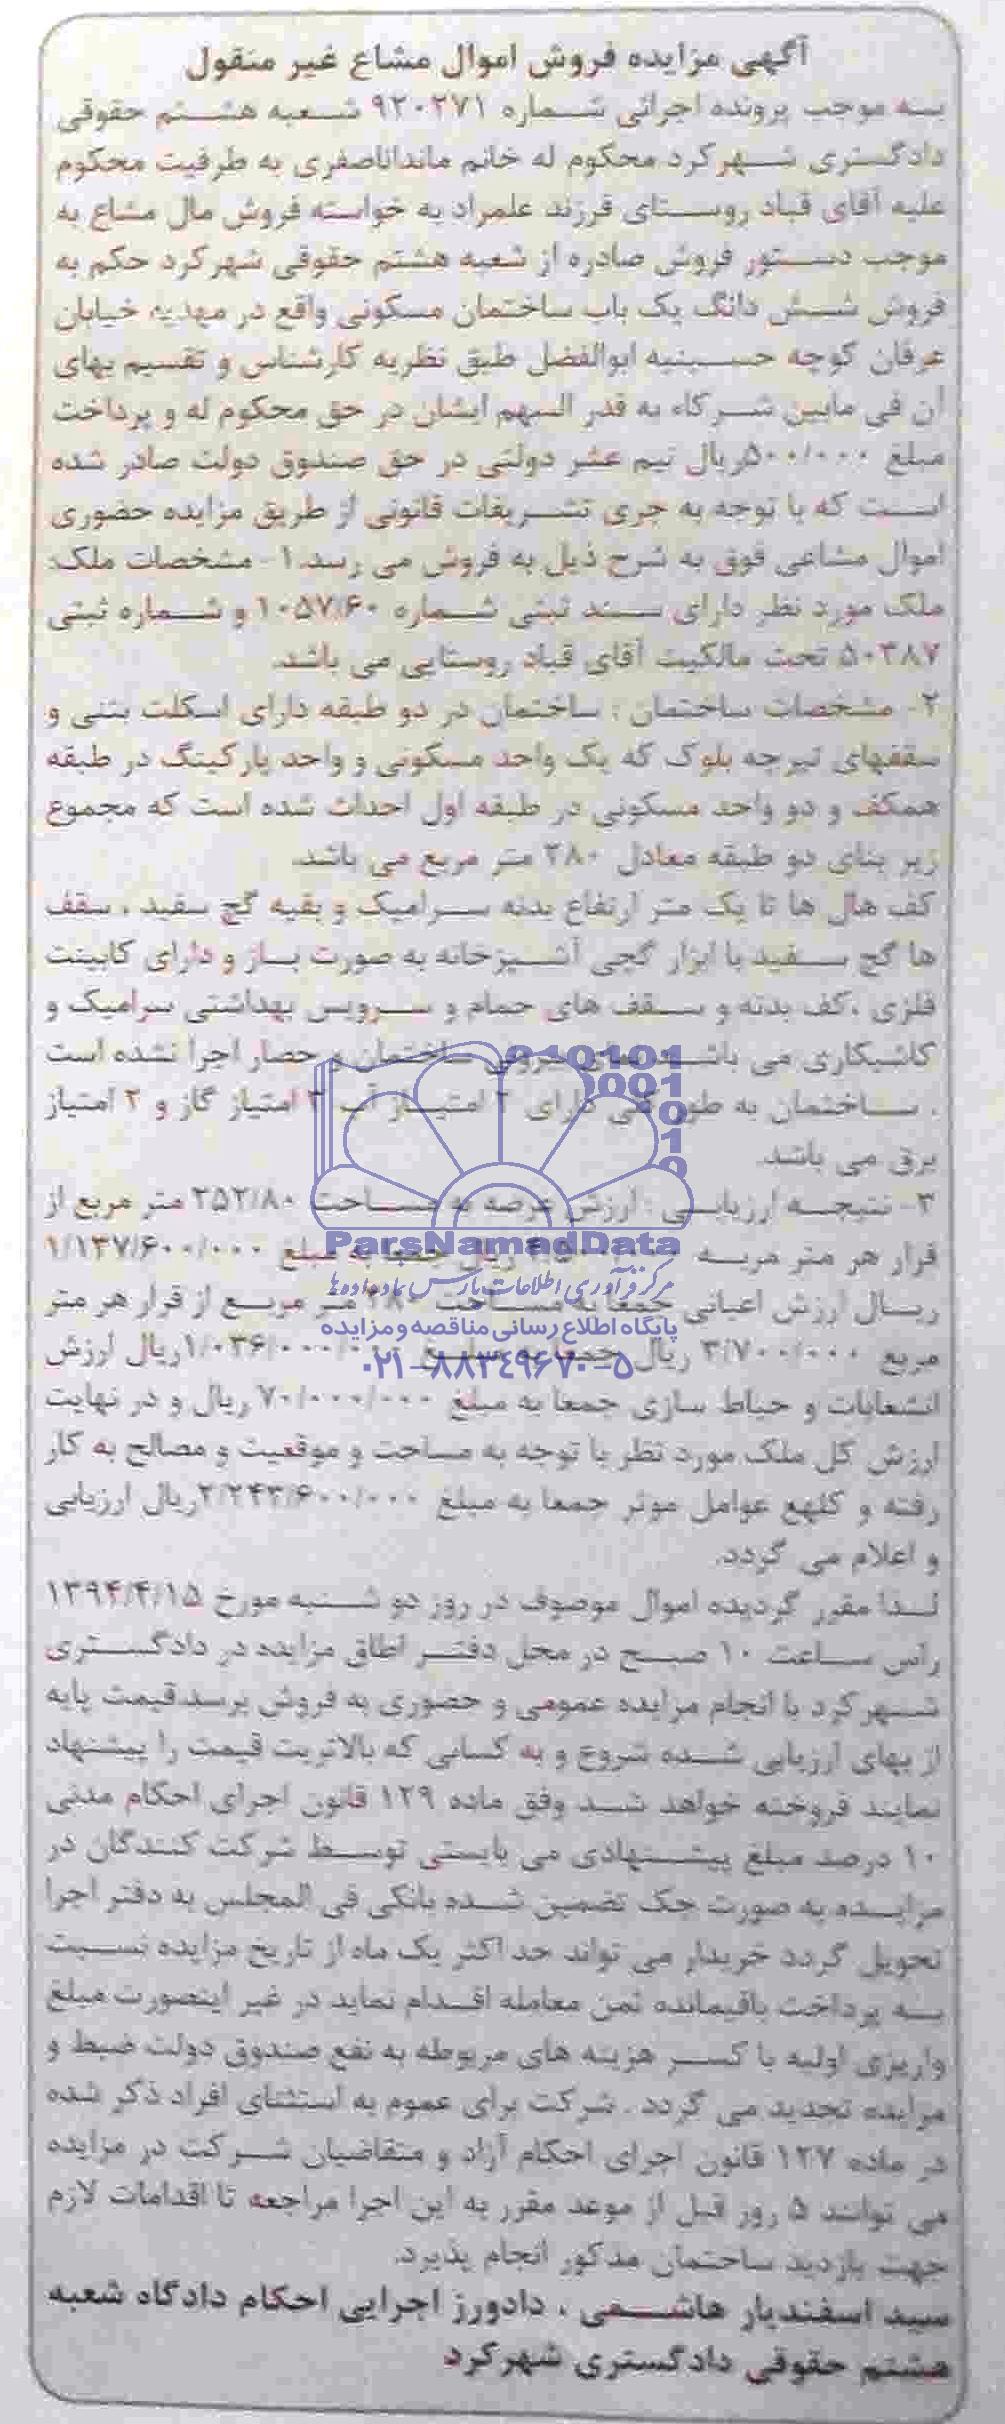 آگهی مزایده فروش اموال مشاع غیر منقول
به موجب پرونده اجرائی شماره ۹۲۰۲۷۱ شعبه هشتم حقوقی
دادگستری شهرکرد محکوم له خانم ماندانا صفری به طرفیت محکوم
علیه آقای قباد روستای فرزند علمراد به خواسته فروش مال مشاع به
موجب دستور فروش صادره از شعبه هشتم حقوقی شهرکرد حکم به
فروش شش دانگ یک باب ساختمان مسکونی واقع در مهدیه خیابان
عرفان کوچه حسینیه ابوالفضل طبق نظریه کارشناس و تقسیم بهای
آن فی مابین شرکاء به قدر السهم ایشان در حق محکوم له و پرداخت
مبلغ ۵۰۰/۰۰۰ریال نیم عشر دولتی در حق صندوق دولت صادر شده
است که با توجه به جری تشریفات قانونی از طریق مزایده حضوری
اموال مشاعی فوق به شرح ذیل به فروش می رسد.۱- مشخصات ملک:
ملک مورد نظر دارای سند ثبتی شماره ۱۰۵۷/۶۰ و شماره ثبتی
۵۰۳۸۷ تحت مالکیت آقای قباد روستایی می باشد.
۲- مشخصات ساختمان : ساختمان در دو طبقه دارای اسکلت بتنی و
سقفهای تیرچه بلوک که یک واحد مسکونی و واحد پارکینگ در طبقه
همکف و دو واحد مسکونی در طبقه اول احداث شده است که مجموع
زیر بنای دو طبقه معادل ۲۸۰ متر مربع می باشد.
کف هال ها تا یک متر ارتفاع بدنه سرامیک و بقیه گچ سفید ، سقف
ها گچ سفید با ابزار گچی آشپزخانه به صورت باز و دارای کابینت
فلزی ،کف بدنه و سقف های حمام و سرویس بهداشتی سرامیک و
کاشیکاری می باشد نمای بیرونی ساختمان و حصار اجرا نشده است
. ساختمان به طور کلی دارای ۲ امتیاز آب ۲ امتیاز گاز و ۲ امتیاز
برق می باشد.
۳- نتیجه ارزیابی : ارزش عرصه به مساحت ۲۵۲/۸۰ متر مربع از
قرار هر متر مربع ۴/۵۰۰/۰۰۰ ریال جمعا به مبلغ ۱/۱۳۷/۶۰۰/۰۰۰
ریال ارزش اعیانی جمعا به مساحت ۲۸۰ متر مربع از قرار هر متر
مربع ۳/۷۰۰/۰۰۰ ریال جمعا به مبلغ ۱/۰۳۶/۰۰۰/۰۰۰ریال ارزش
انشعابات و حیاط سازی جمعا به مبلغ ۷۰/۰۰۰/۰۰۰ ریال و در نهایت
ارزش کل ملک مورد نظر با توجه به مساحت و موقعیت و مصالح به کار
رفته و کلهع عوامل موثر جمعا به مبلغ ۲/۲۴۳/۶۰۰/۰۰۰ریال ارزیابی
و اعلام می گردد.
لذا مقرر گردیده اموال موصوف در روز دو شنبه مورخ ۱۳۹۴/۴/۱۵
راس ساعت ۱۰ صبح در محل دفتر اطاق مزایده در دادگستری
شهرکرد با انجام مزایده عمومی و حضوری به فروش برسد.قیمت پایه
از بهای ارزیابی شده شروع و به کسانی که بالاتریت قیمت را پیشنهاد
نمایند فروخته خواهد شد وفق ماده ۱۲۹ قانون اجرای احکام مدنی
۱۰ درصد مبلغ پیشنهادی می بایستی توسط شرکت کنندگان در
مزایده به صورت چک تضمین شده بانکی فی المجلس به دفتر اجرا
تحویل گردد خریدار می تواند حداکثر یک ماه از تاریخ مزایده نسبت
به پرداخت باقیمانده ثمن معامله اقدام نماید در غیر اینصورت مبلغ
واریزی اولیه با کسر هزینه های مربوطه به نفع صندوق دولت ضبط و
مزایده تجدید می گردد . شرکت برای عموم به استثنای افراد ذکر شده
در ماده ۱۲۷ قانون اجرای احکام آزاد و متقاضیان شرکت در مزایده
می توانند ۵ روز قبل از موعد مقرر به این اجرا مراجعه تا اقدامات لازم
جهت بازدید ساختمان مذکور انجام پذیرد.
سید اسفندیار هاشمی ، دادورز اجرایی احکام دادگاه شعبه
هشتم حقوقی دادگستری شهرکرد
ParsNamadData
مرکز فرآوری اطلاعات پارس نماد داده ها
پایگاه اطلاع رسانی مناقصه و مزایده
۰۲۱-۸۸۳۴۹۶۷۰-۵